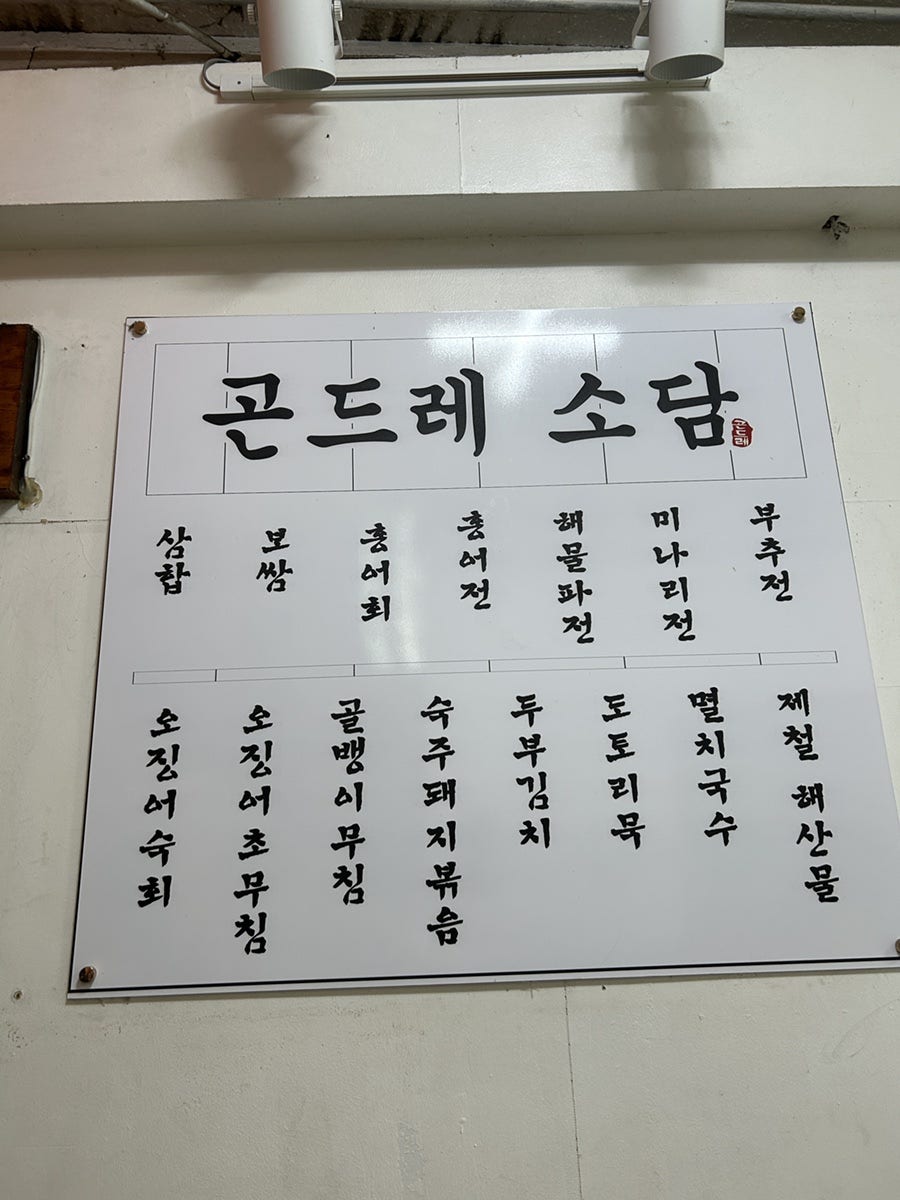 곤드레 소담
곤드레
삼합
보쌈
홍어회
홍어전
해물파전
미나리전
부추전
오징어숙회
오징어초무침
골뱅이무침
숙주돼지볶음
두부김치
도토리묵
멸치국수
제철 해산물